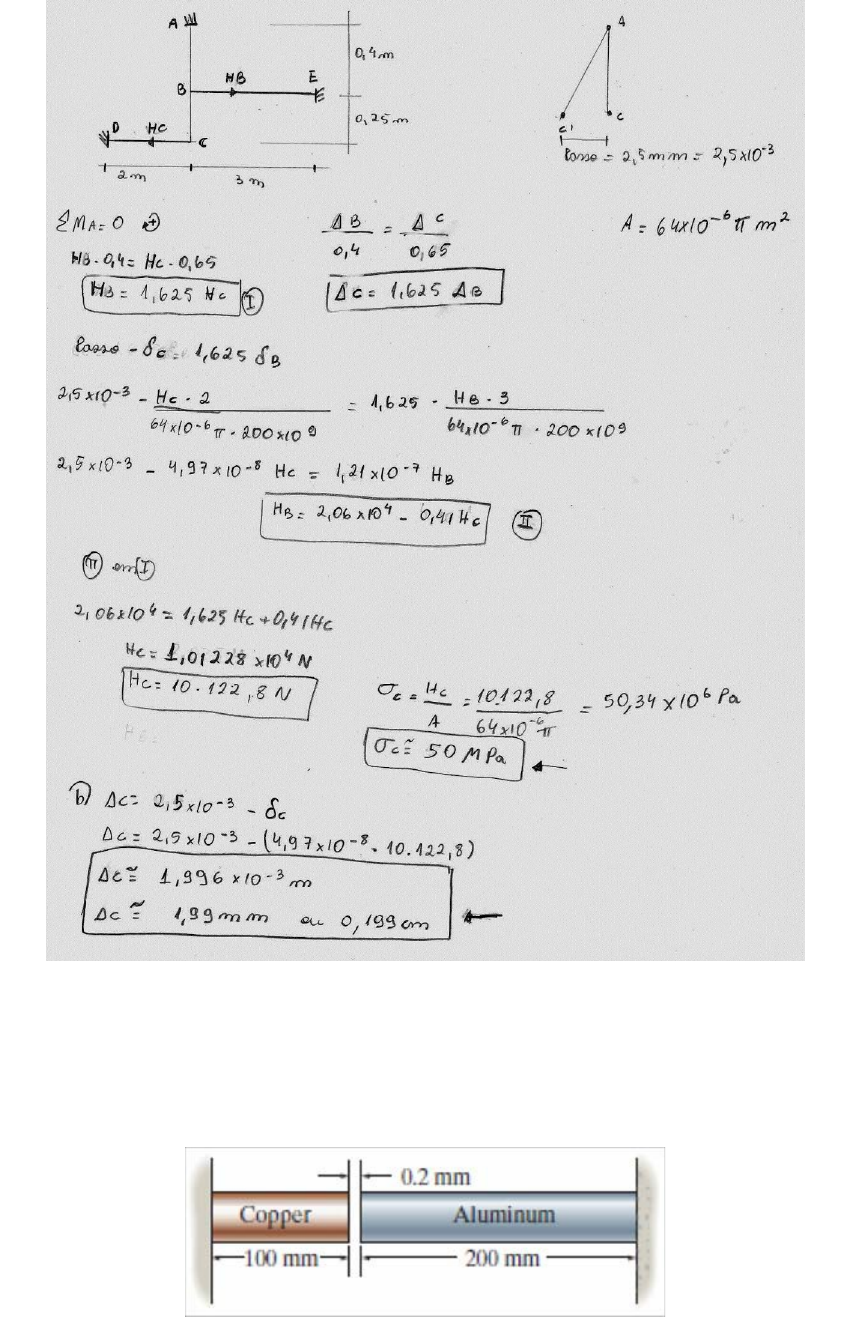 A
0,4 m
B HB E
0,25 m
D HC C
2 m 3 m
A
C' C
Passo = 2,5 mm = 2,5x10⁻³
ΣMA=0 +
HB·0,4= Hc·0,65
HB = 1,625 Hc I
ΔB/0,4 = ΔC/0,65
ΔC = 1,625 ΔB
A = 64x10⁻⁶ π m²
Passo - δc = 1,625 δB
2,5x10⁻³ - Hc·2/64x10⁻⁶ π · 200x10⁹ = 1,625 · HB·3/64x10⁻⁶ π · 200x10⁹
2,5x10⁻³ - 4,97x10⁻⁸ Hc = 1,21x10⁻⁷ HB
HB = 2,06x10⁴ - 0,41Hc II
II em I
2,06x10⁴ = 1,625 Hc + 0,41Hc
Hc = 1,01228 x10⁴ N
Hc = 10.122,8 N
σc = Hc/A = 10.122,8/64x10⁻⁶π = 50,34 x 10⁶ Pa
σc ≅ 50 MPa
b) Δc = 2,5x10⁻³ - δc
Δc = 2,5x10⁻³ - (4,97x10⁻⁸ · 10.122,8)
Δc ≅ 1,996 x10⁻³ m
Δc ≅ 1,99 mm ou 0,199 cm
0.2 mm
Copper Aluminum
100 mm 200 mm